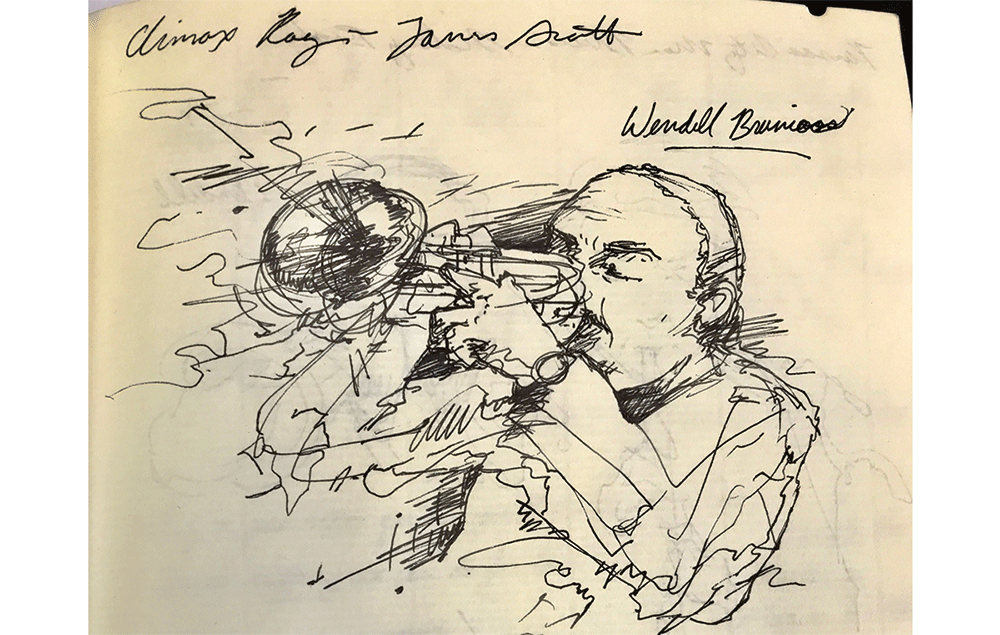 Climax Rag - James Scott
Wendell Brunious